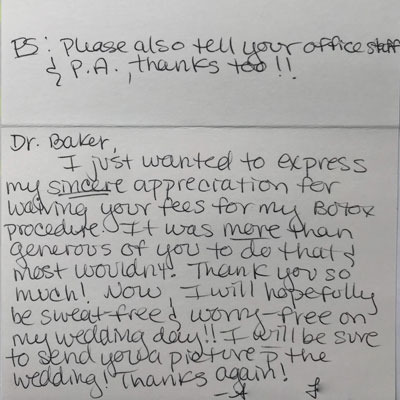 PS: Please also tell your office staff
& P.A., thanks too!!
Dr. Baker,
I just wanted to express
my sincere appreciation for
waiving your fees for my Botox
procedure. It was more than
generous of you to do that &
most wouldn't! Thank you so
much! Now, I will hopefully
be sweat-free & worry-free on
my wedding day!! I will be sure
to send you a picture p̄ the
wedding! Thanks again!